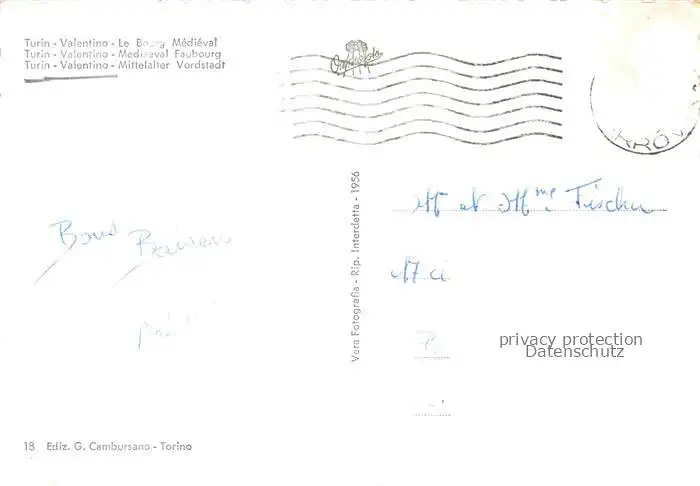 Turin - Valentino - Le Bourg Médiéval
Turin - Valentino - Mediæval Faubourg
Turin - Valentino - Mittelalter Vordstadt
Vera Fotografia - Rip. Interdetta - 1956
Bons
Baisers
M et Mme Fischer
17 ci
P.
privacy protection
Datenschutz
18 Ediz. G. Cambursano - Torino